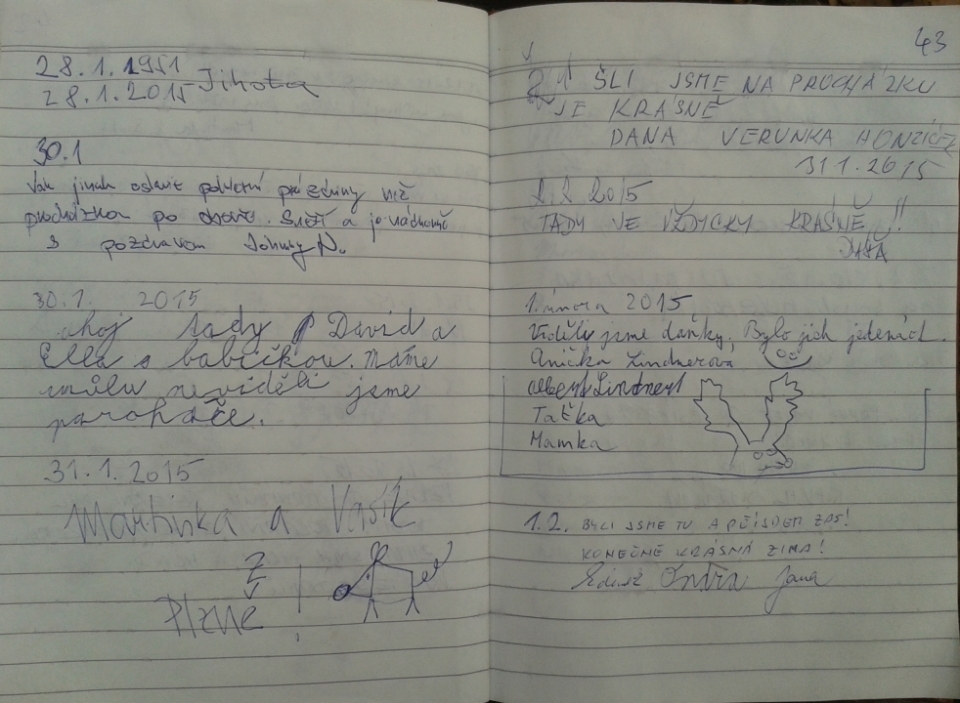 28.1.1951
28.1.2015 Jihotá
30.1
Jak jinak oslavit pololetní prázdniny než
procházka po oboře. Sněží a je nádherně
S pozdravem Johnny N.
30.1. 2015
ahoj tady David a
Ella s babičkou. Máme
smůlu neviděli jsme
paroháče.
31.1.2015
Martinka a Vašík
Z
Plzně !
43
ŠLI JSME NA PROCHÁZKU
JE KRÁSNĚ
DANA VERUNKA HONZÍČEK
31 1. 2015
1.2 2015
TADY JE VŽDYCKY KRÁSNĚ!!
1. února 2015
Viděli jsme daňky, Bylo jich jedenáct.
Anička Lindnerová
Albert Lindnert
Taťka
Mamka
1.2. BYLI JSME TU A PŘIJDEM ZAS!
KONEČNĚ KRÁSNÁ ZIMA!
Ondra Jana